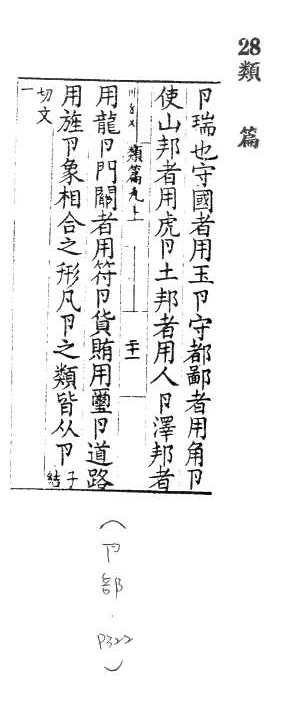 28 類篇
卪瑞也守國者用玉卪守都鄙者用角卪
使山邦者用虎卪土邦者用人卪澤邦者
類篇九上
用龍卪門關者用符卪貨賄用璽卪道路
用旌卪象相合之形凡卪之類皆从卪子結
切文一
(卪部.P322)